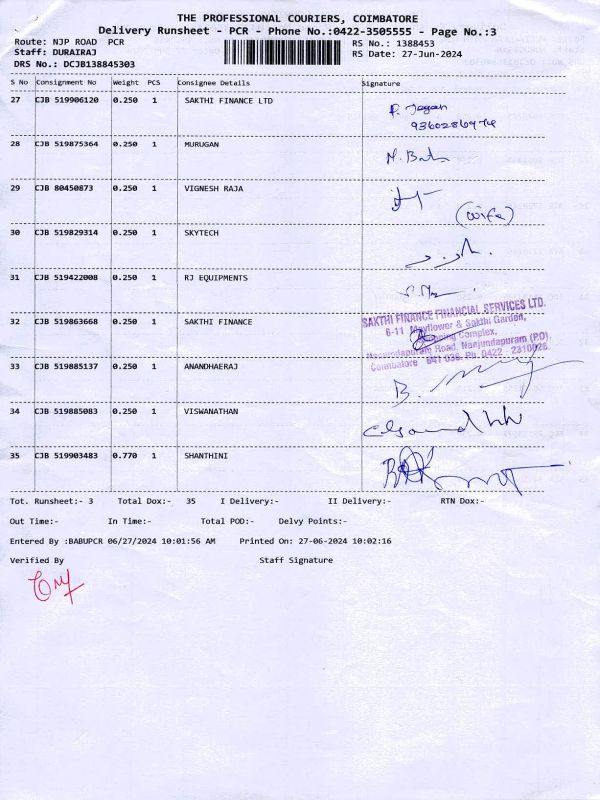 THE PROFESSIONAL COURIERS, COIMBATORE
Delivery Runsheet - PCR - Phone No.:0422-3505555 - Page No.:3
Route: NJP ROAD PCR RS No.: 1388453
Staff: DURAIRAJ RS Date: 27-Jun-2024
DRS No.: DCJB138845303
S No Consignment No Weight PCS Consignee Details Signature
27 CJB 519906120 0.250 1 SAKTHI FINANCE LTD
28 CJB 519875364 0.250 1 MURUGAN
29 CJB 80450873 0.250 1 VIGNESH RAJA
(wife)
30 CJB 519829314 0.250 1 SKYTECH
31 CJB 519422008 0.250 1 RJ EQUIPMENTS
32 CJB 519863668 0.250 1 SAKTHI FINANCE
SAKTHI FINANCE FINANCIAL SERVICES LTD.
Mayflower & Sakthi Garden,
Complex,
Road, Nanjundapuram (P.O),
Coimbatore 641 036. Ph. 0422 -
33 CJB 519885137 0.250 1 ANANDHAERAJ
34 CJB 519885083 0.250 1 VISWANATHAN
35 CJB 519903483 0.770 1 SHANTHINI
Tot. Runsheet:- 3 Total Dox:- 35 I Delivery:- II Delivery:- RTN Dox:-
Out Time:- In Time:- Total POD:- Delvy Points:-
Entered By :BABUPCR 06/27/2024 10:01:56 AM Printed On: 27-06-2024 10:02:16
Verified By Staff Signature